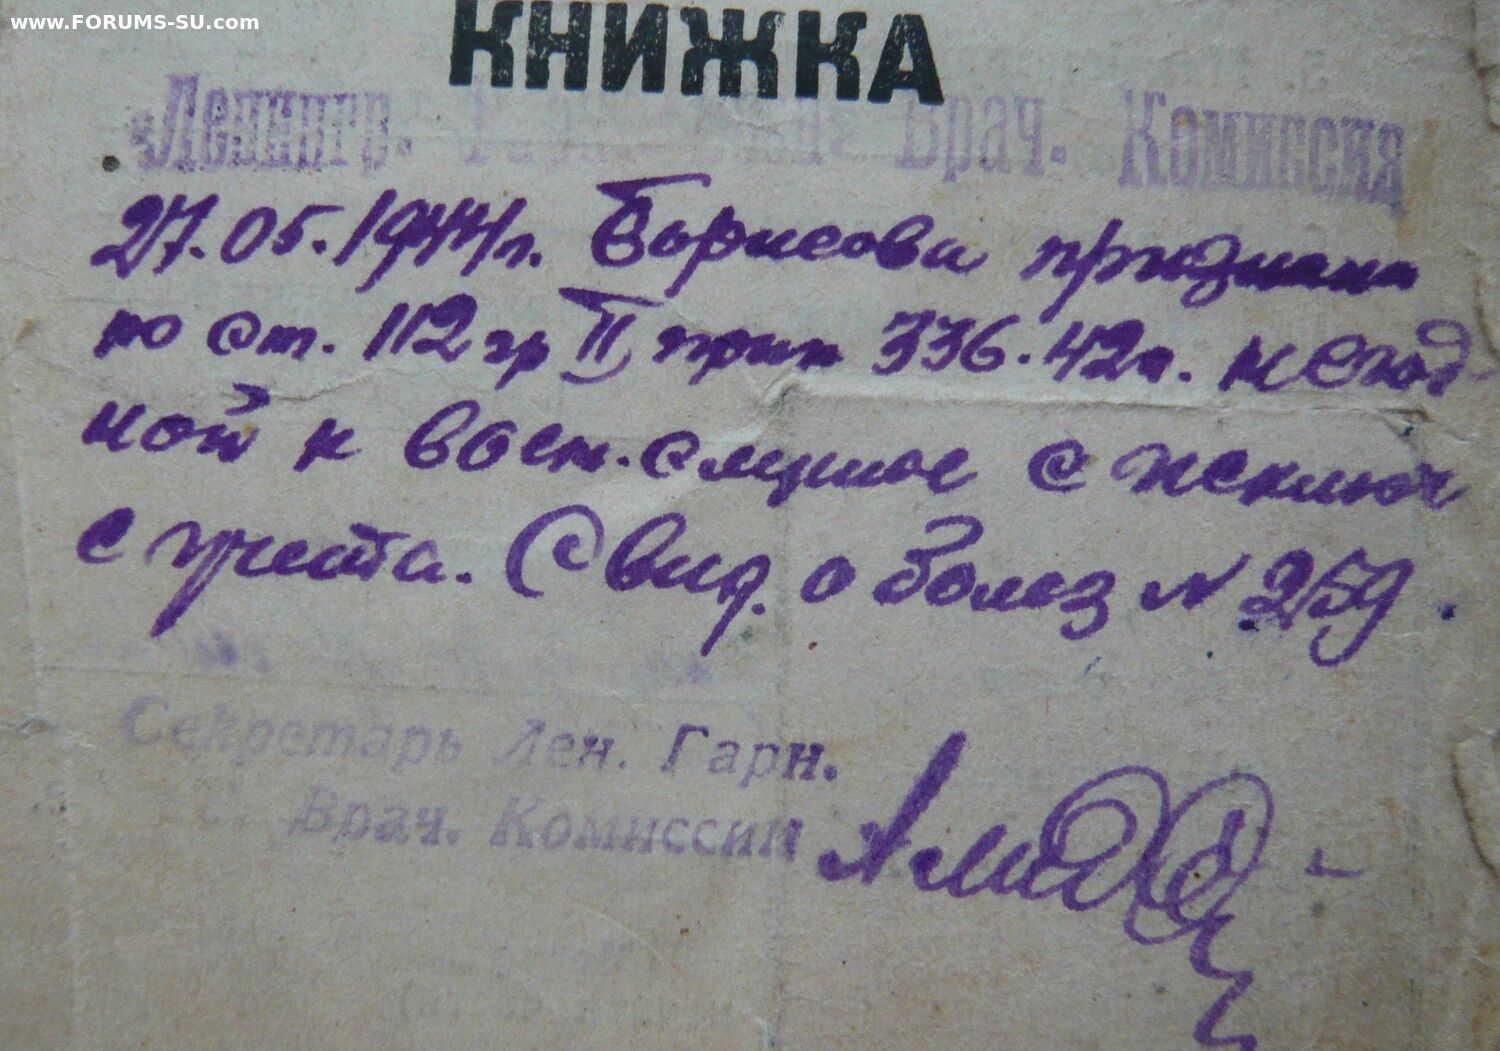 www.FORUMS-SU.com
КНИЖКА
Ленингр. Гарн. Воен. Врач. Комиссия
27.05.1944г. Борисова признана
по ст. 112 гр II прик 336.42г. негод-
ной к воен. службе с исключ
с учета. Свид. о болез N 259.
Секретарь Лен. Гарн.
Врач. Комиссии